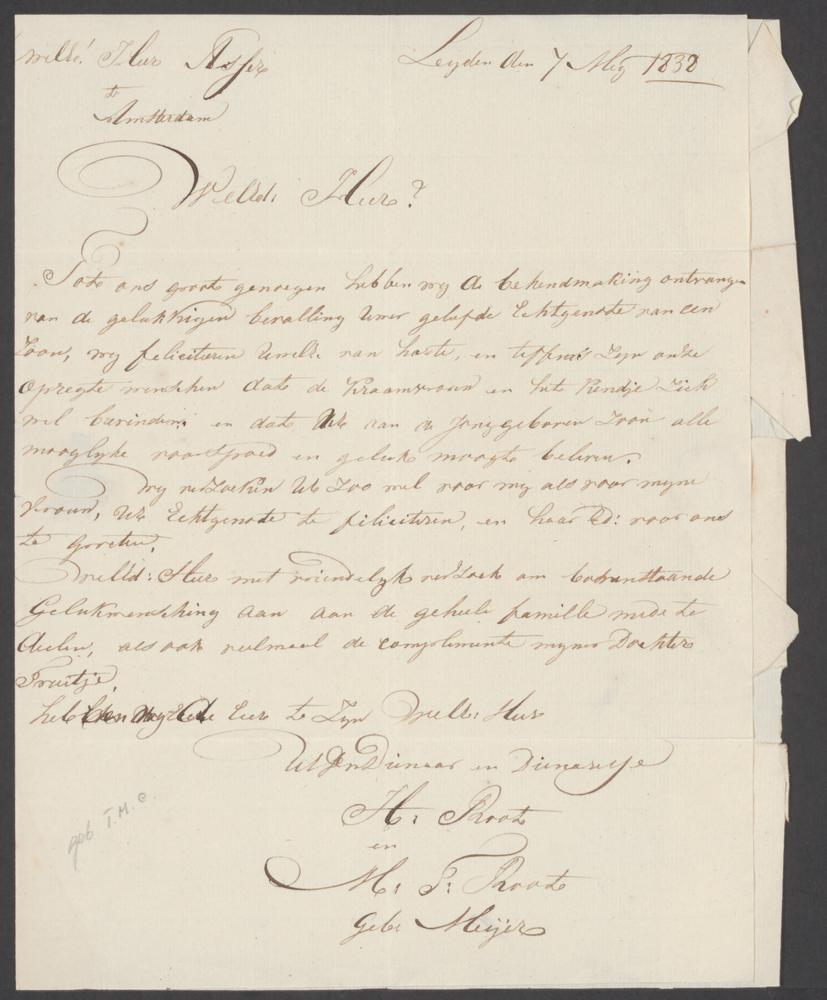 Welld! Heer Asser
te
Amsterdam
Leyden den 7 Mey 1838
Welld: Heer?
Tot ons groote genoegen hebben wy de bekendmaking ontvangen
van de gelukkigen bevalling Uwer geliefde Echtgenote van een
Zoon, wy feliciteren Uwelld. van harte, en teffens Zyn onze
opregte wenschen dat de Kraamvrouw en het Kindje Zich
wel bevinden en dat U van de Jonggeboren Zoon alle
mooglyke voorspoed en geluk moogt beleven.
wy verzoeken U Zoo wel voor my als voor myne
Vrouw, Uw Echtgenote te feliciteren, en haar Ed: voor ons
te groeten,
Welld: Heer met vriendelyk verzoek om bovenstaande
Gelukwensching aan de geheele familie mede te
deelen, als ook veelmaal de complimente myner Dochter
Truitje,
heb de Eer te Zyn Welld: Heer
UEd Dienaar en Dienaresse
H: Root
en
M: T: Root
Geb: Meijer
geb. T. M. C.